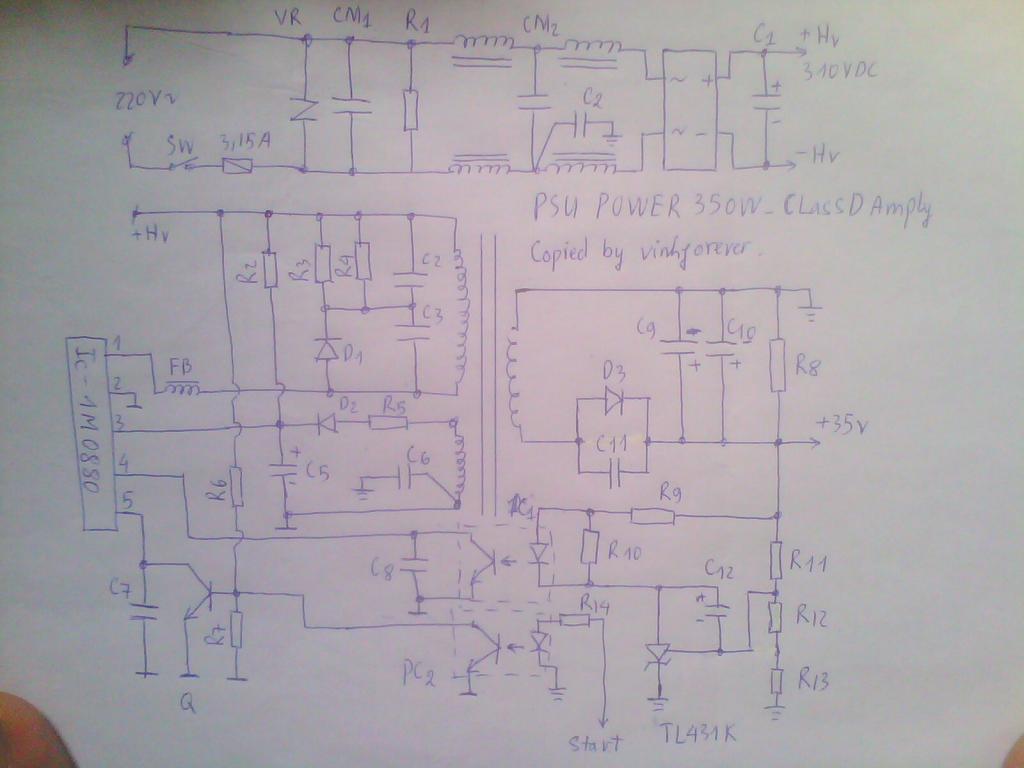 VR CM1 R1 CM2 C1 +Hv
310VDC
220V~
C2
~ +
SW 3,15A
~ -
-Hv
PSU POWER 350W_CLassD Amply
Copied by vinhforever.
+Hv
R2 R3 R4 C2
C3
C9 C10
R8
D1
IC-1M0880
1
FB
2
D3
D2 R5
3
C11
+35v
4
R6
C5
C6
5
R9
PC1
R10
C8
C12
R11
C7
R14
R12
R7
PC2
R13
Q
Start
TL431K